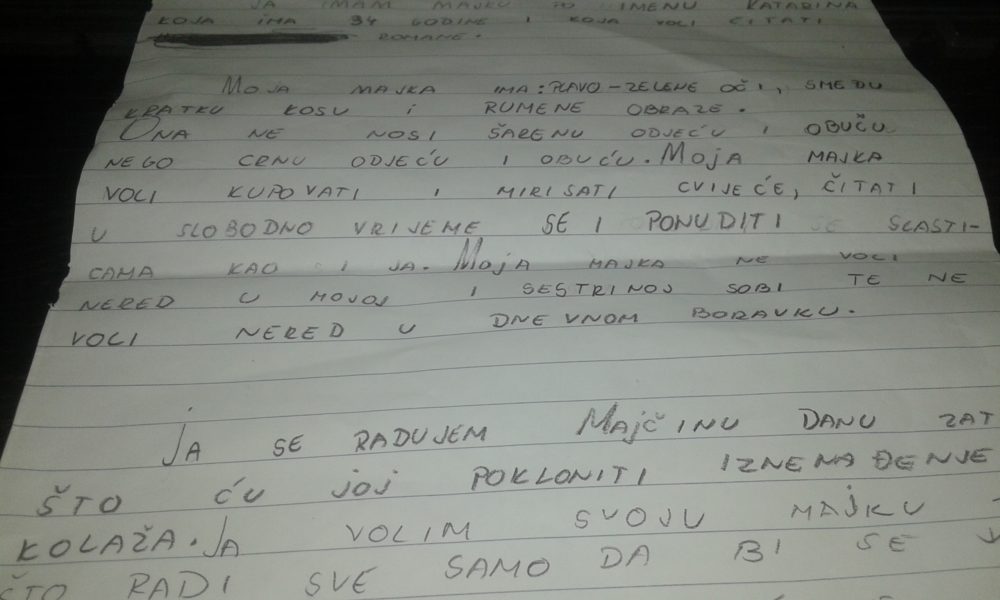 JA IMAM MAJKU PO IMENU KATARINA
KOJA IMA 34 GODINE I KOJA VOLI ČITATI
ROMANE.
MOJA MAJKA IMA: PLAVO-ZELENE OČI, SMEĐU
KRATKU KOSU I RUMENE OBRAZE.
ONA NE NOSI ŠARENU ODJEĆU I OBUĆU
NEGO CRNU ODJEĆU I OBUĆU. MOJA MAJKA
VOLI KUPOVATI I MIRISATI CVIJEĆE, ČITATI
U SLOBODNO VRIJEME SE I PONUDITI SLASTI-
CAMA KAO I JA. MOJA MAJKA NE VOLI
NERED U MOJOJ I SESTRINOJ SOBI TE NE
VOLI NERED U DNEVNOM BORAVKU.
JA SE RADUJEM MAJČINU DANU ZAT
ŠTO ĆU JOJ POKLONITI IZNENAĐENJE
KOLAŽA. JA VOLIM SVOJU MAJKU
ŠTO RADI SVE SAMO DA BI SE